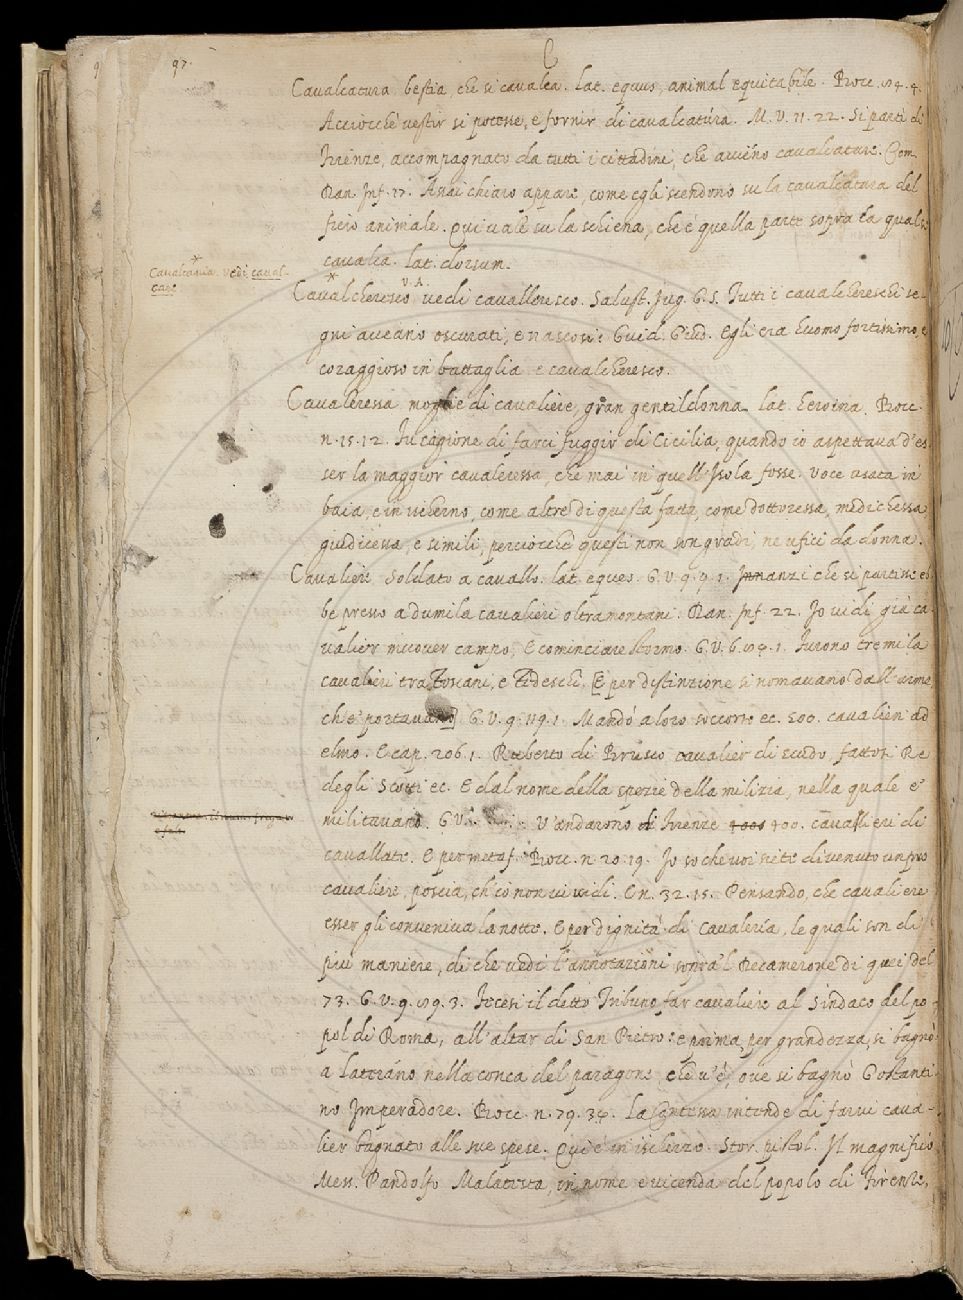 97.
C
Cavalcatura bestia, che si cavalca. lat. equus, animal equitabile. Bocc. 4.
Acciocchè vestir si potesse, e fornir di cavalcatúra. M. V. 11. 22. Si partì di
Firenze, accompagnato da tutti i cittadini, che avieno cavalcature. Com.
Dan. Inf. 17. Assai chiaro appare, come egli scendono su la cavalcatura del
fiero animale. Qui vale su la schiena, che è quella parte sopra la quale si
cavalca. lat. dorsum.
* Cavalcania. vedi caval-
care
* Cavalcheresco V.A. vedi cavalleresco. Salust. Jug. G. S. Tutti i cavalchereschi se-
gni aveano oscurati, e nascosi: Guid. Giud. Egli era huomo fortissimo, e
coraggioso in battaglia e cavalcheresco.
Cavaleressa moglie di cavaliere, gran gentildonna lat. heroina. Bocc.
n. 15. 12. Fu cagione di farci fuggir di Cicilia, quando io aspettava d'es
ser la maggior cavaleressa, che mai in quell'Isola fosse. voce usata in
baia, e in ischerno, come altre di questa fatta, come dottoressa, medichessa,
giudicessa, e simili, perciocchè questi non son gradi, ne ufici da donna.
Cavaliere. Soldato a cavallo. lat. eques. G. V. 9. 9. 1. Innanzi che si partisse eb
be presso a dumila cavalieri oltramontani. Dan. Inf. 22. Io vidi già ca
valier muover campo, E cominciare stormo. G. V. 6. 1. Furono tremila
cavalieri tra Toscani, e Tedeschi. E per distinzione si nomavano dall'arme
ch'e' portavano G. V. 9. 119. 1. Mandò a loro soccorso ec. 500. cavalieri ad
elmo. E cap. 206. 1. Ruberto di Brusco cavalier di scudo, fattosi Re
degli Scotti ec. E dal nome della spezie della milizia, nella quale e'
militavano. G. V. V'andarono di Firenze 400. cavallieri di
cavallate. E per metaf. Bocc. n. 20. 19. Io so che voi siete divenuto un pro
cavaliere, poscia, ch'io non vi vidi. E n. 32. 15. Pensando, che cavaliere
esser gli conveniva la notte. E per dignità di Cavalería, le quali son di
più maniere, di che vedi l'annotazioni sopra 'l Decamerone di quei del
73. G. V. 9. 3. Fecesi il detto Tribuno far cavaliere al Sindaco del po-
pol di Roma, all'altar di San Pietro: e prima, per grandezza, si bagnò
a Laterano nella conca del paragone, che v'è, ove si bagnò Gostanti
no Imperadore. Bocc. n. 79. 34. La Contessa intende di farvi cava-
lier bagnato alle sue spese. Qui è in ischerzo. Stor. Pistol. Il magnifico
Mess. Pandolfo Malatesta, in nome e vicenda del popolo di Firenze,